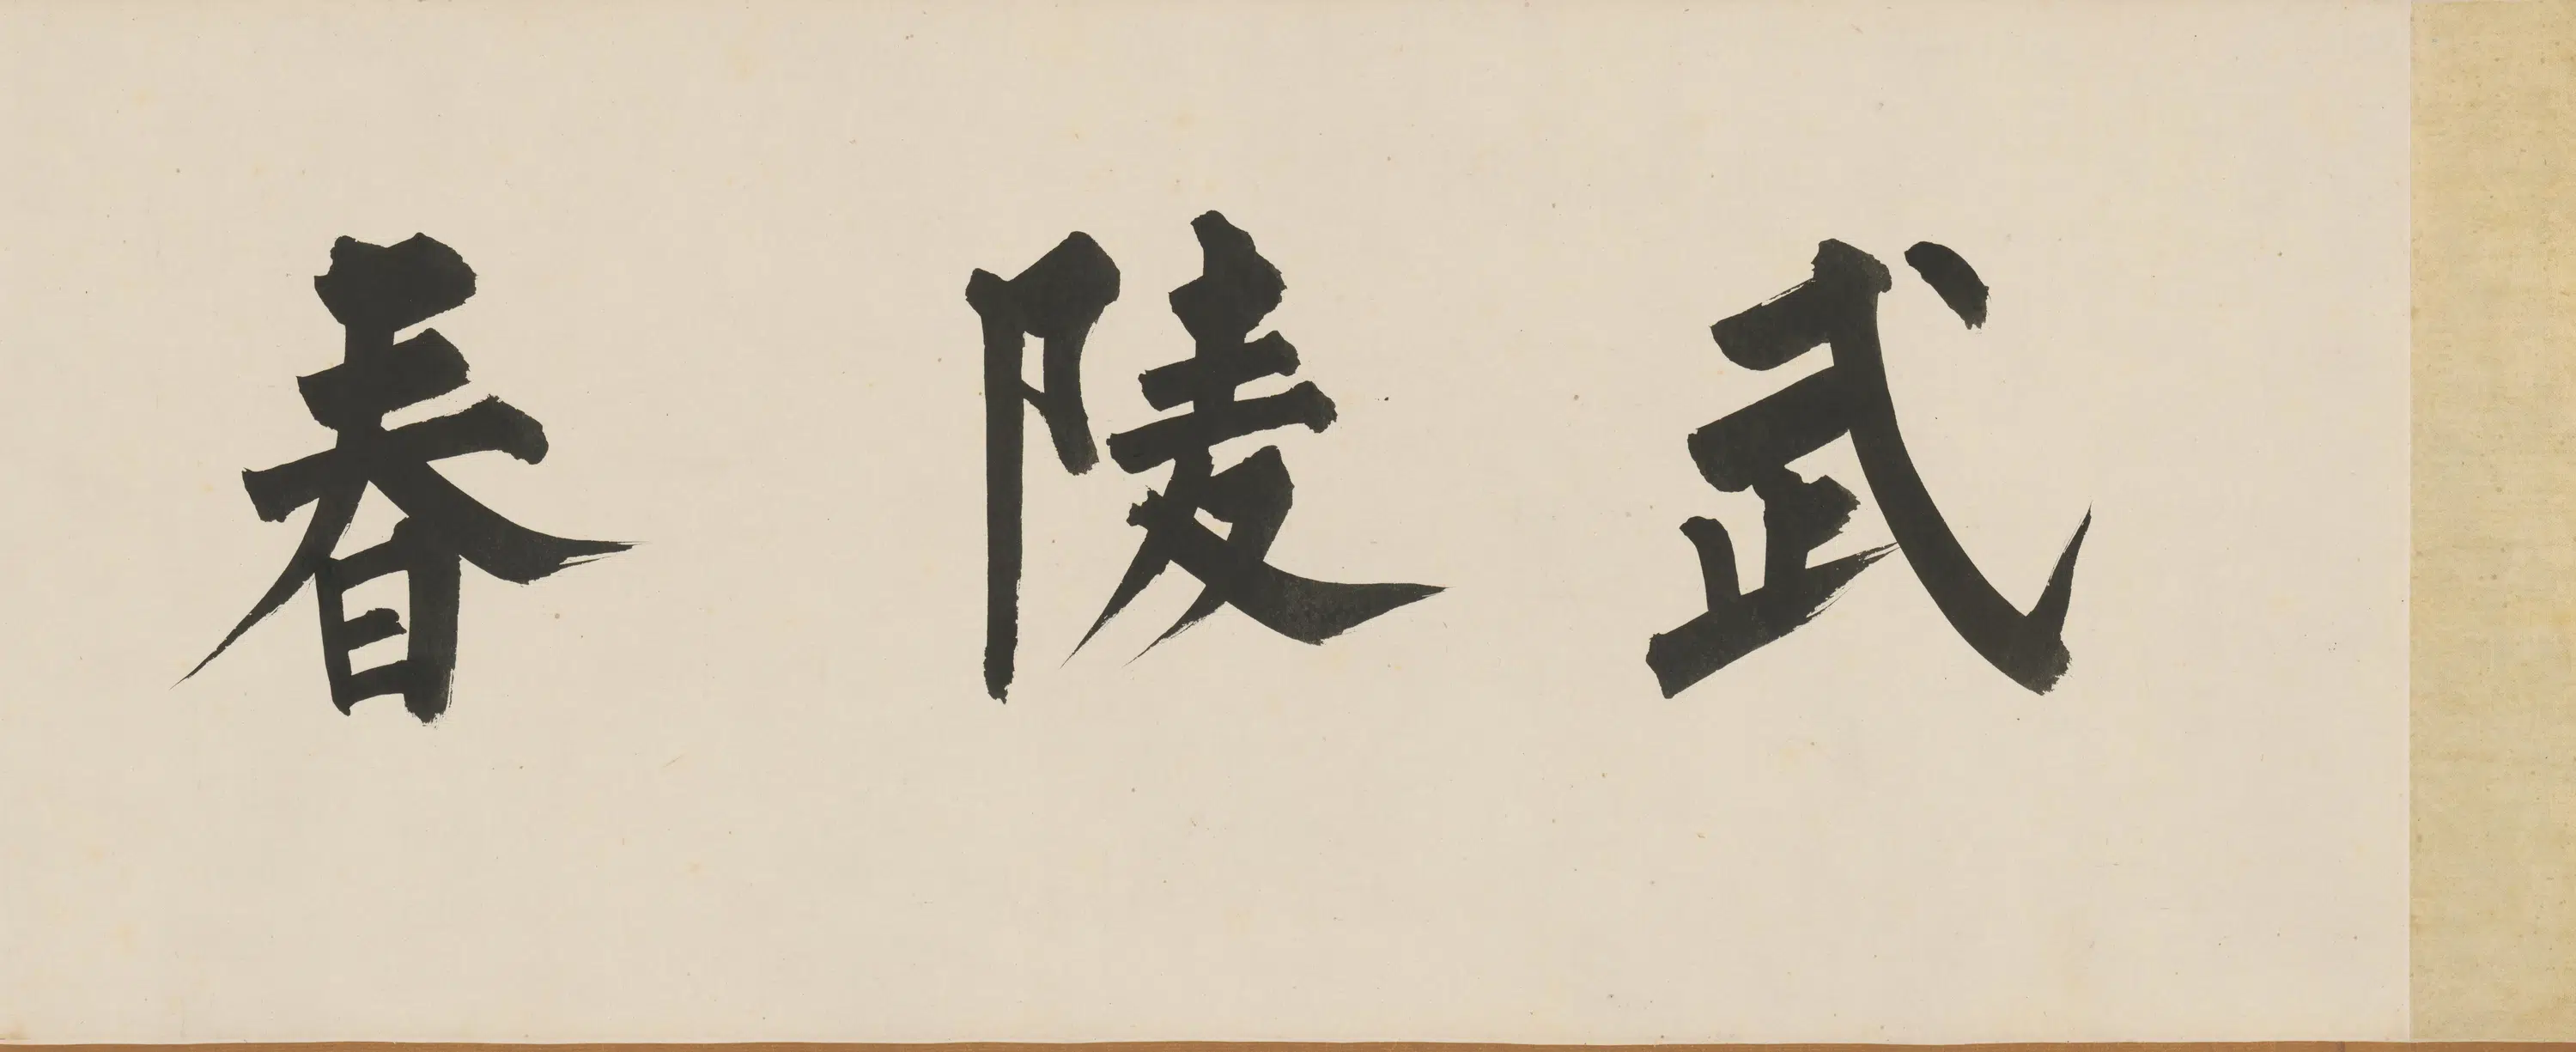 武陵春